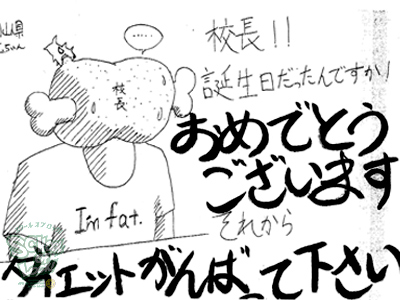 山県
ん
......
校長!!
誕生日だったんですか!
校長
おめでとう
ございます
I'm fat.
それから
ダイエットがんばって下さい